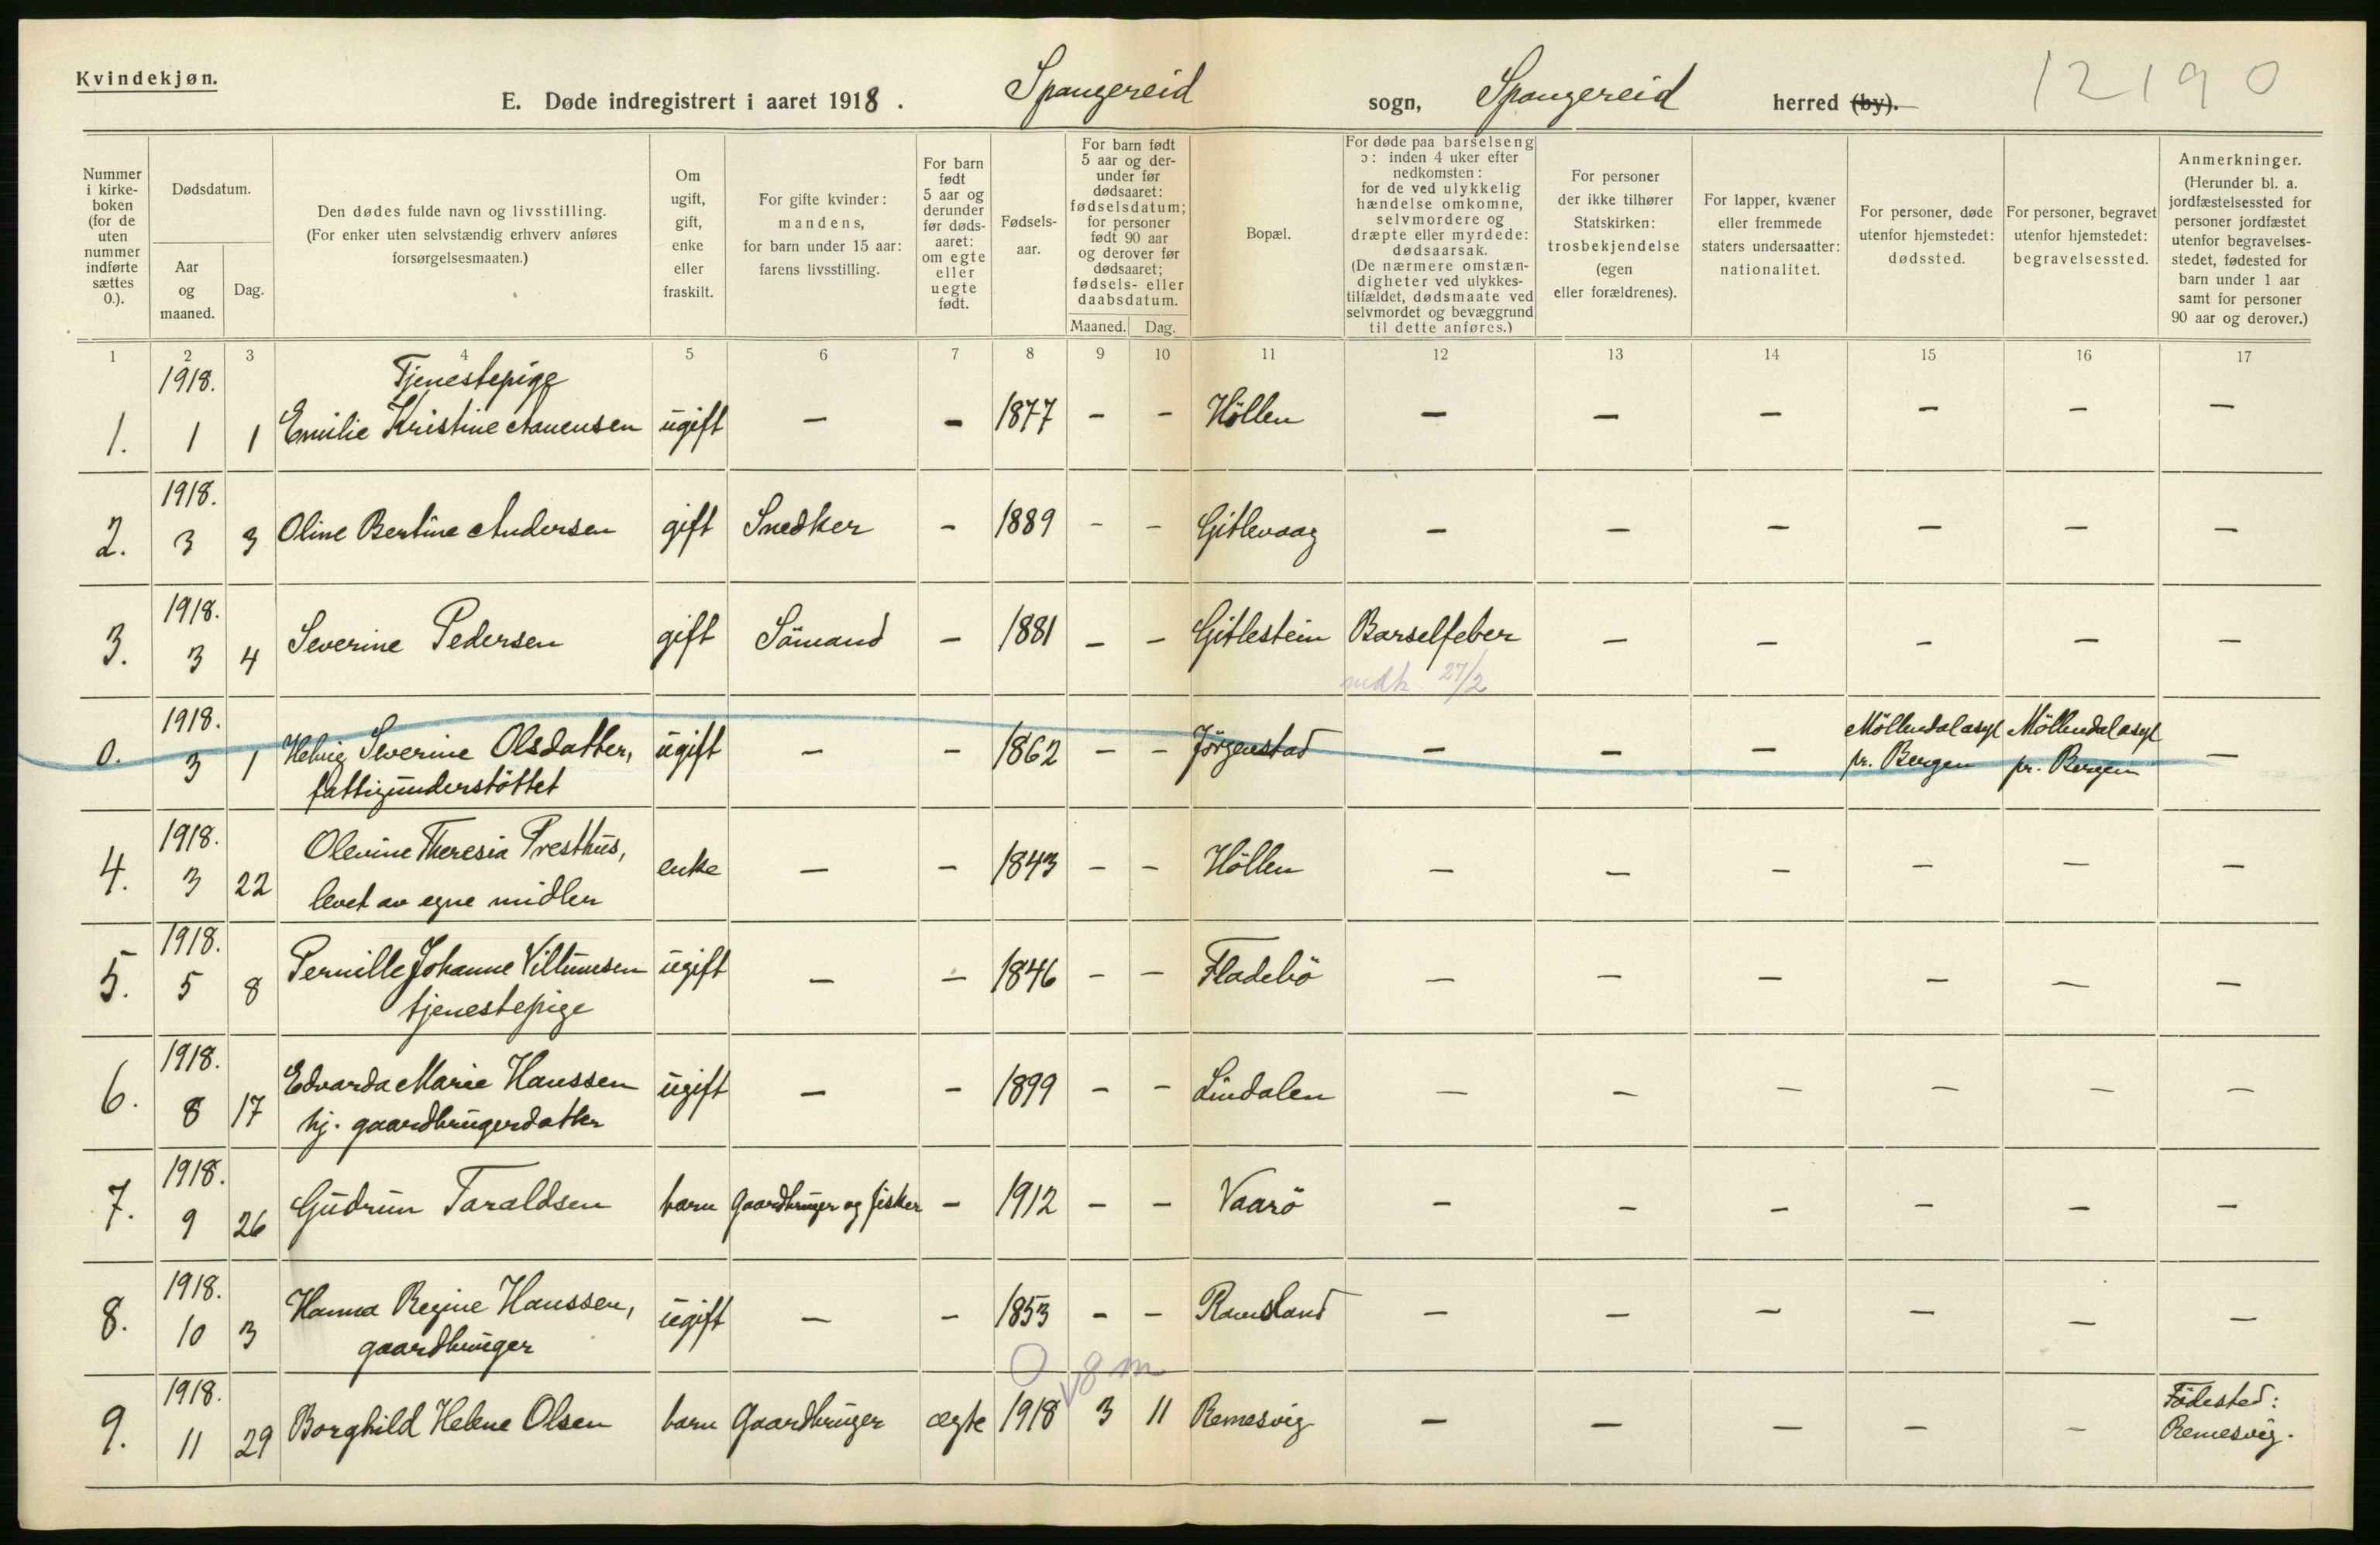 Kvindekjøn.
E. Døde indregistrert i aaret 1918. Spangereid sogn, Spangereid herred (by).
12190
Nummer i kirkeboken (for de uten nummer indførte sættes 0.).
Dødsdatum.
Aar og maaned.
Dag.
Den dødes fulde navn og livsstilling.
(For enker uten selvstændig erhverv anføres forsørgelsesmaaten.)
Om ugift, gift, enke eller fraskilt.
For gifte kvinder: mandens, for barn under 15 aar: farens livsstilling.
For barn født 5 aar og derunder før dødsaaret: om egte eller uegte født.
Fødselsaar.
For barn født 5 aar og derunder før dødsaaret: fødselsdatum; for personer født 90 aar og derover før dødsaaret; fødsels- eller daabsdatum.
Maaned. Dag.
Bopæl.
For døde paa barselseng ɔ: inden 4 uker efter nedkomsten: for de ved ulykkelig hændelse omkomne, selvmordere og dræpte eller myrdede: dødsaarsak. (De nærmere omstændigheter ved ulykkestilfældet, dødsmaate ved selvmordet og bevæggrund til dette anføres.)
For personer der ikke tilhører Statskirken: trosbekjendelse (egen eller forældrenes).
For lapper, kvæner eller fremmede staters undersaatter: nationalitet.
For personer, døde utenfor hjemstedet: dødssted.
For personer, begravet utenfor hjemstedet: begravelsessted.
Anmerkninger. (Herunder bl. a. jordfæstelsessted for personer jordfæstet utenfor begravelsesstedet, fødested for barn under 1 aar samt for personer 90 aar og derover.)
1 2 3 4 5 6 7 8 9 10 11 12 13 14 15 16 17
1918. Tjenestepige
1. 1 1 Emilie Kristine Aanensen ugift – – 1877 – – Höllen – – – – – –
1918.
2. 3 3 Oline Bertine Andersen gift Snedker – 1889 – – Gitlevaag – – – – – –
1918.
3. 3 4 Severine Pedersen gift Sömand – 1881 – – Gitlestein Barselfeber – – – – –
27/2
1918.
0. 3 1 Helvig Severine Olsdatter, ugift – – 1862 – – Jörgenstad – – – Möllendal asyl Möllendal asyl –
fattigunderstöttet pr. Bergen pr. Bergen
1918.
4. 3 22 Olevine Theresia Presthus, enke – – 1843 – – Höllen – – – – – –
levet av egne midler
1918.
5. 5 8 Pernille Johanne Villumsen ugift – – 1846 – – Fladebö – – – – – –
tjenestepige
1918.
6. 8 17 Edvarda Marie Hanssen ugift – – 1899 – – Lindalen – – – – – –
hj. gaardbrugerdatter
1918.
7. 9 26 Gudrun Taraldsen barn Gaardbruger og fisker – 1912 – – Vaarö – – – – – –
1918.
8. 10 3 Hanna Regine Hanssen, ugift – – 1853 – – Ramsland – – – – – –
gaardbruger
0 8 m
1918.
9. 11 29 Borghild Helene Olsen barn Gaardbruger ægte 1918 3 11 Remesvig – – – – – Födested:
Remesvig.